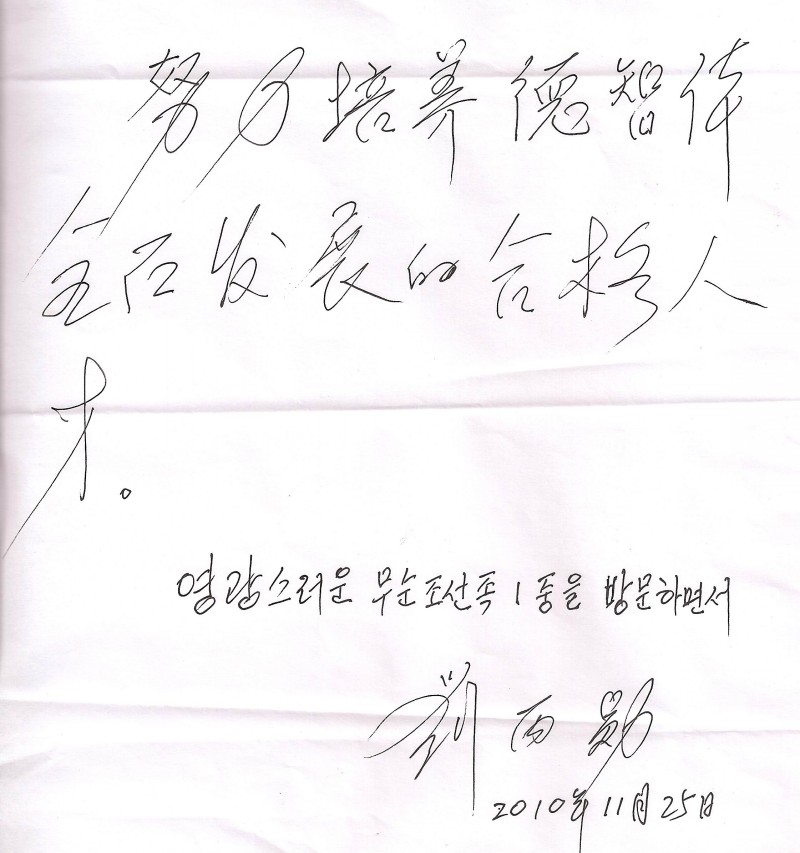 努力培养德智体
全面发展的合格人
才。
영광스러운 무순조선족 1 중을 방문하면서
劉丙勛
2010年11月25日